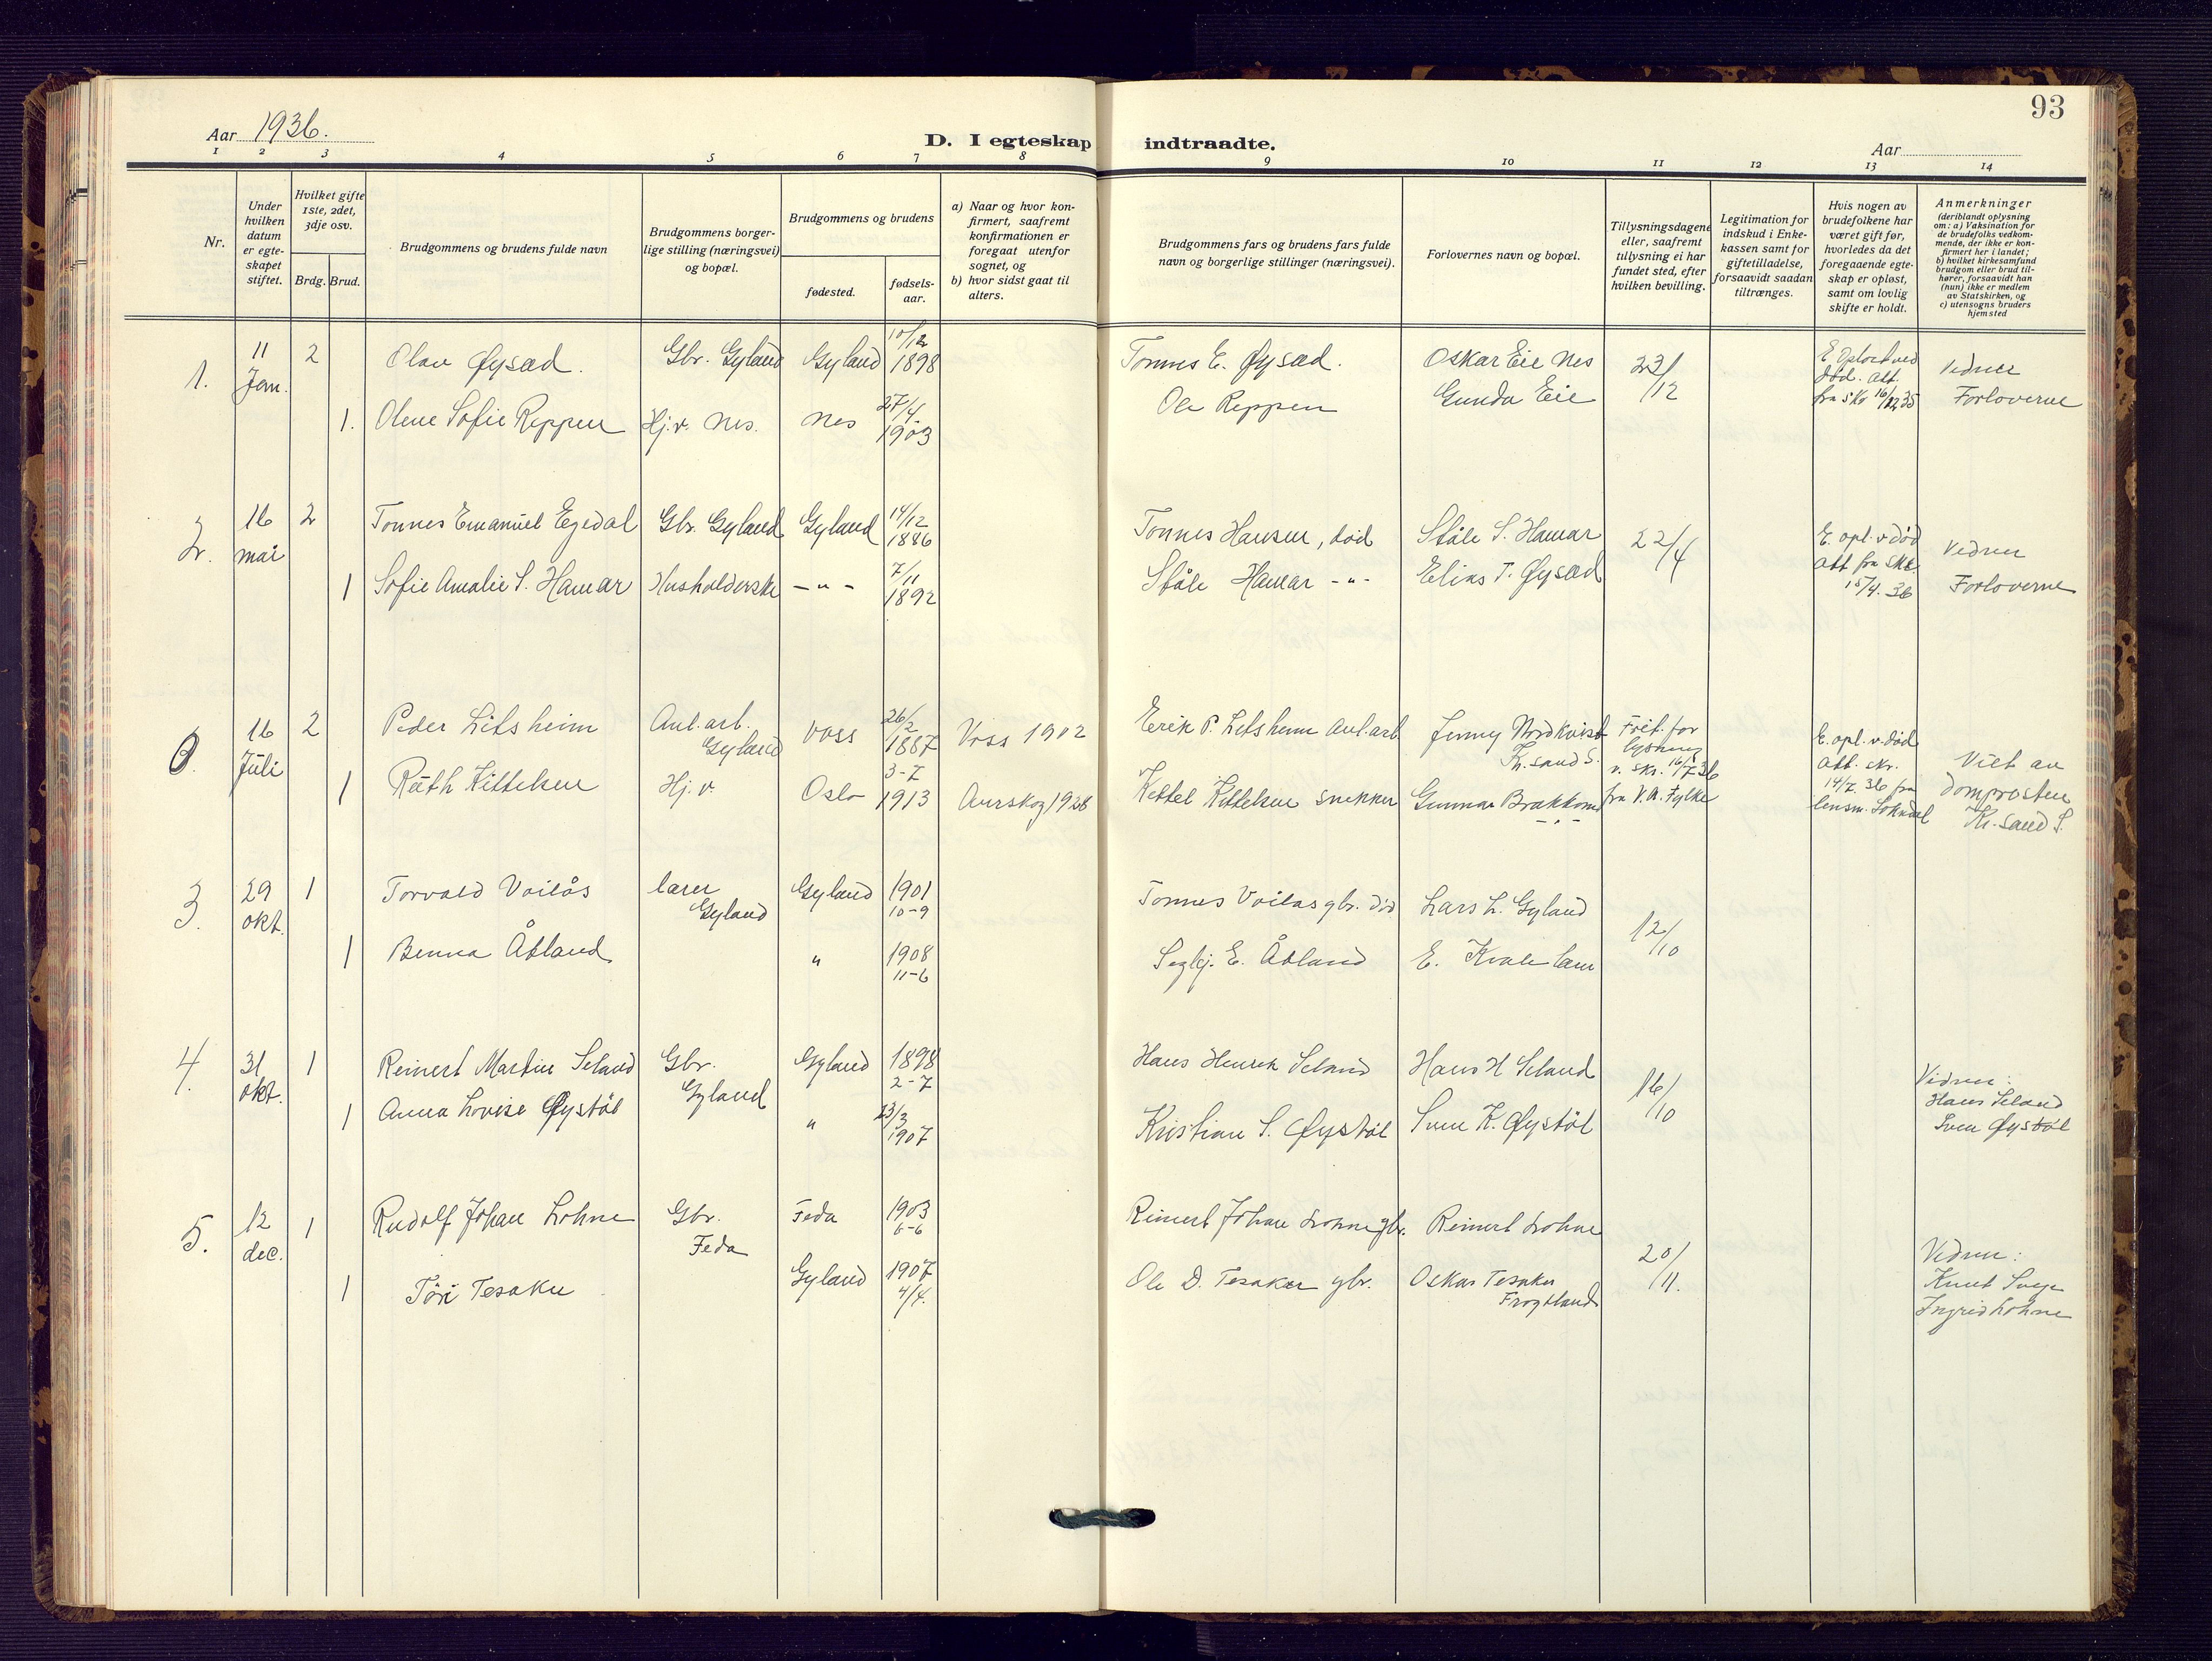 93
Aar 1936.
D. I egteskap indtraadte.
Aar
1 2 3 4 5 6 7 8 9 10 11 12 13 14
Nr.
Under hvilken datum er egteskapet stiftet.
Hvilket gifte 1ste, 2det, 3dje osv.
Brdg. Brud.
Brudgommens og brudens fulde navn
Brudgommens borgerlige stilling (næringsvei) og bopæl.
Brudgommens og brudens
fødested.
fødselsaar.
a) Naar og hvor konfirmert, saafremt konfirmationen er foregaat utenfor sognet, og
b) hvor sidst gaat til alters.
Brudgommens fars og brudens fars fulde navn og borgerlige stillinger (næringsvei).
Forlovernes navn og bopæl.
Tillysningsdagene eller, saafremt tillysning ei har fundet sted, efter hvilken bevilling.
Legitimation for indskud i Enkekassen samt for giftetilladelse, forsaavidt saadan tiltrænges.
Hvis nogen av brudefolkene har været gift før, hvorledes da det foregaaende egteskap er opløst, samt om lovlig skifte er holdt.
Anmerkninger
(deriblandt oplysning om: a) Vaksination for de brudefolks vedkommende, der ikke er konfirmert her i landet; b) hvilket kirkesamfund brudgom eller brud tilhører, forsaavidt han (hun) ikke er medlem av Statskirken, og c) utensogns bruders hjemsted
1. 11 Jan. 2 Olav Øysæd. Gbr. Gyland Gyland 10/12 1898 Tonnes E. Øysæd. Oskar Eie Nes 23/12 E. Opløst ved død. att. fra skr 16/12 35 Vidner
1. Olene Sofie Reppen Hj.v. Nes. Nes 27/4 1903 Ole Reppen Gunda Eie Forloverne
2. 16 mai 2 Tonnes Emanuel Egedal Gbr. Gyland Gyland 14/12 1886 Tonnes Hansen, død Ståle S. Hamar 22/4 E. opl. v død Att fra skr. 15/4. 36 Vidner
1 Sofie Amalie S. Hamar Husholderske -"- 7/11 1892 Ståle Hamar -"- Elias T. Øysæd Forloverne
0. 16 Juli 2 Peder Litsheim Anl.arb. Gyland Voss 26/2 1887 Voss 1902 Erik P. Litsheim Anl.arb Jenny Nordkvist Kr.sand S. Frit. for lysning v. skr. 16/7 36 fra V.A. Fylke E. opl. v. død att. skr. 14/7. 36 fra lensm. Viet av domprosten Kr.sand S.
1 Ruth Kittelsen Hj.v. Oslo 3-7 1913 Aurskog 1928 Kettel Kittelsen snekker Gunnar -"-
3. 29 okt. 1 Torvald Voilås lærer Gyland Gyland 1901 10-9 Tonnes Voilas gbr. død Lars L. Gyland 12/10
1 Benna Åtland " 1908 11-6 E. Åtland E. Kvale
4. 31 okt. 1 Reinert Martin Seland Gbr. Gyland Gyland 1898 2-7 Hans Henrik Seland Hans H Seland 16/10 Vidner:
Hans Seland
Sven Øystøl
1 Anna Lovise Øystøl " 23/3 1907 Kristian S. Øystøl Sven K. Øystøl
5. 12 dec. 1 Rudolf Johan Lohne Gbr. Feda Feda 1903 6-6 Reinert Johan Lohne gbr. Reinert Lohne 20/11. Vidner:
Knut
Ingrid Lohne
1 Tesaker Gyland 1907 4/4. Ole D. Tesaker gbr. Oskar Tesaker